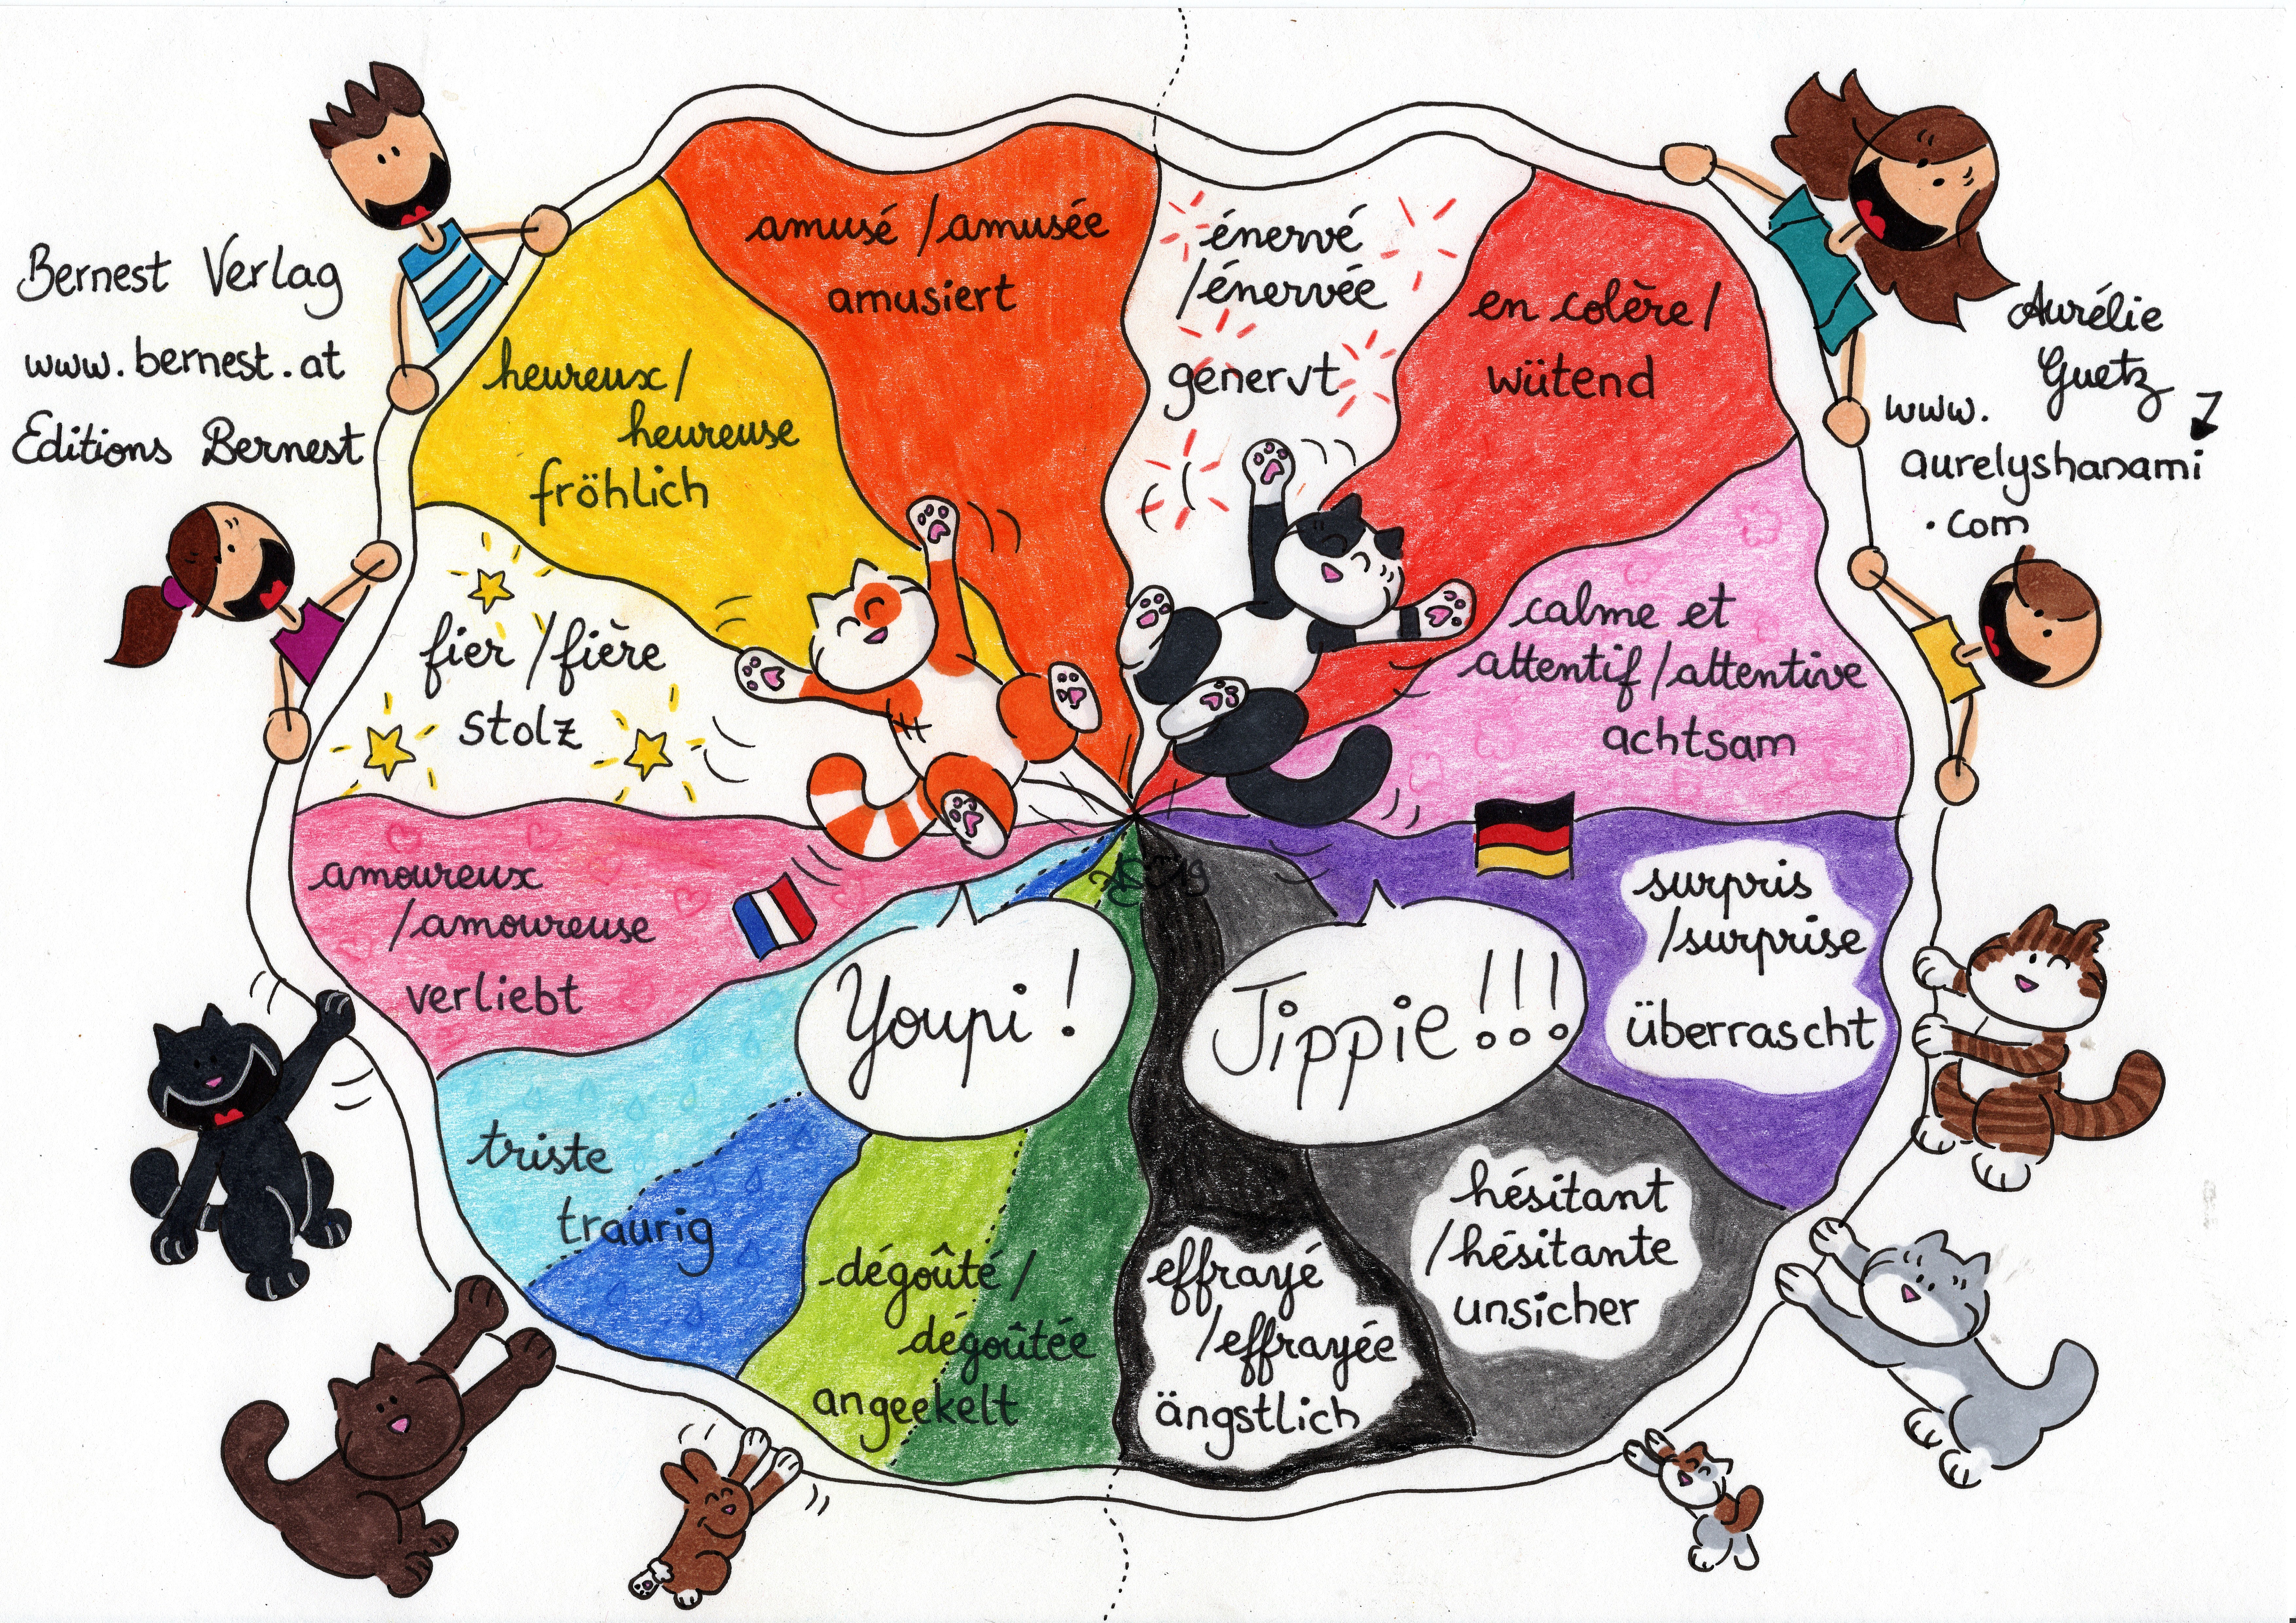 Bernest Verlag
www.bernest.at
Editions Bernest
Aurélie
Guetz
www.
aurelyshanami
.com
amusé / amusée
amusiert
énervé
/énervée
genervt
en colère /
wütend
heureux /
heureuse
fröhlich
fier / fière
stolz
calme et
attentif / attentive
achtsam
amoureux
/amoureuse
verliebt
surpris
/surprise
überrascht
Youpi !
Jippie !!!
triste
traurig
dégoûté /
dégoûtée
angeekelt
effrayé
/effrayée
ängstlich
hésitant
/hésitante
unsicher